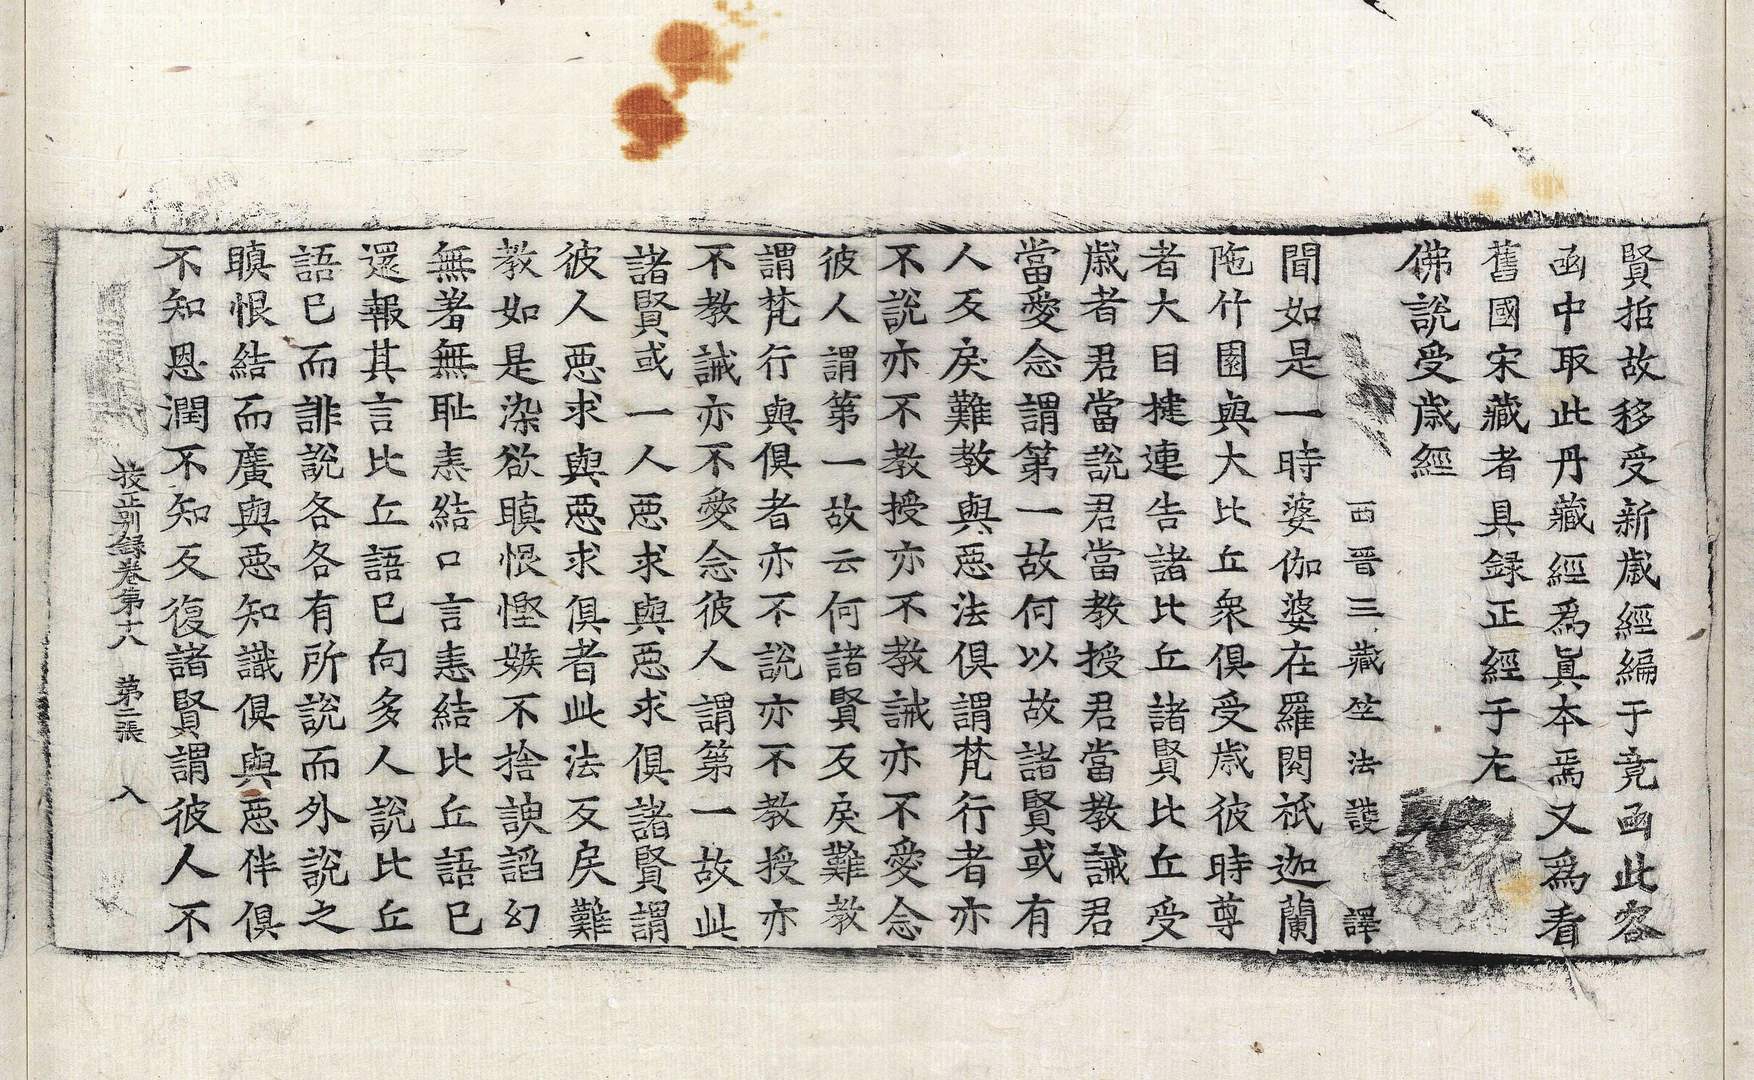 賢哲故移受新歳經編于竟函此容
函中取此丹藏經爲眞本焉又爲看
舊國宋藏者具録正經于左
佛說受歳經
西晋三藏竺法護譯
聞如是一時婆伽婆在羅閱祇迦蘭
陁竹園與大比丘衆俱受歳彼時尊
者大目揵連告諸比丘諸賢比丘受
歳者君當說君當教授君當教誡君
當愛念謂第一故何以故諸賢或有
人反戾難教與惡法俱謂梵行者亦
不說亦不教授亦不教誡亦不愛念
彼人謂第一故云何諸賢反戾難教
謂梵行與俱者亦不說亦不教授亦
不教誡亦不愛念彼人謂第一故此
諸賢或一人惡求與惡求俱諸賢謂
彼人惡求與惡求俱者此法反戾難
教如是染欲瞋恨慳嫉不捨諛諂幻
無羞無耻恚結口言恚結比丘語已
還報其言比丘語已向多人說比丘
語已而誹說各各有所說而外說之
瞋恨結而廣與惡知識俱與惡伴俱
不知恩潤不知反復諸賢謂彼人不
挍正別録卷第十八 第二張 入